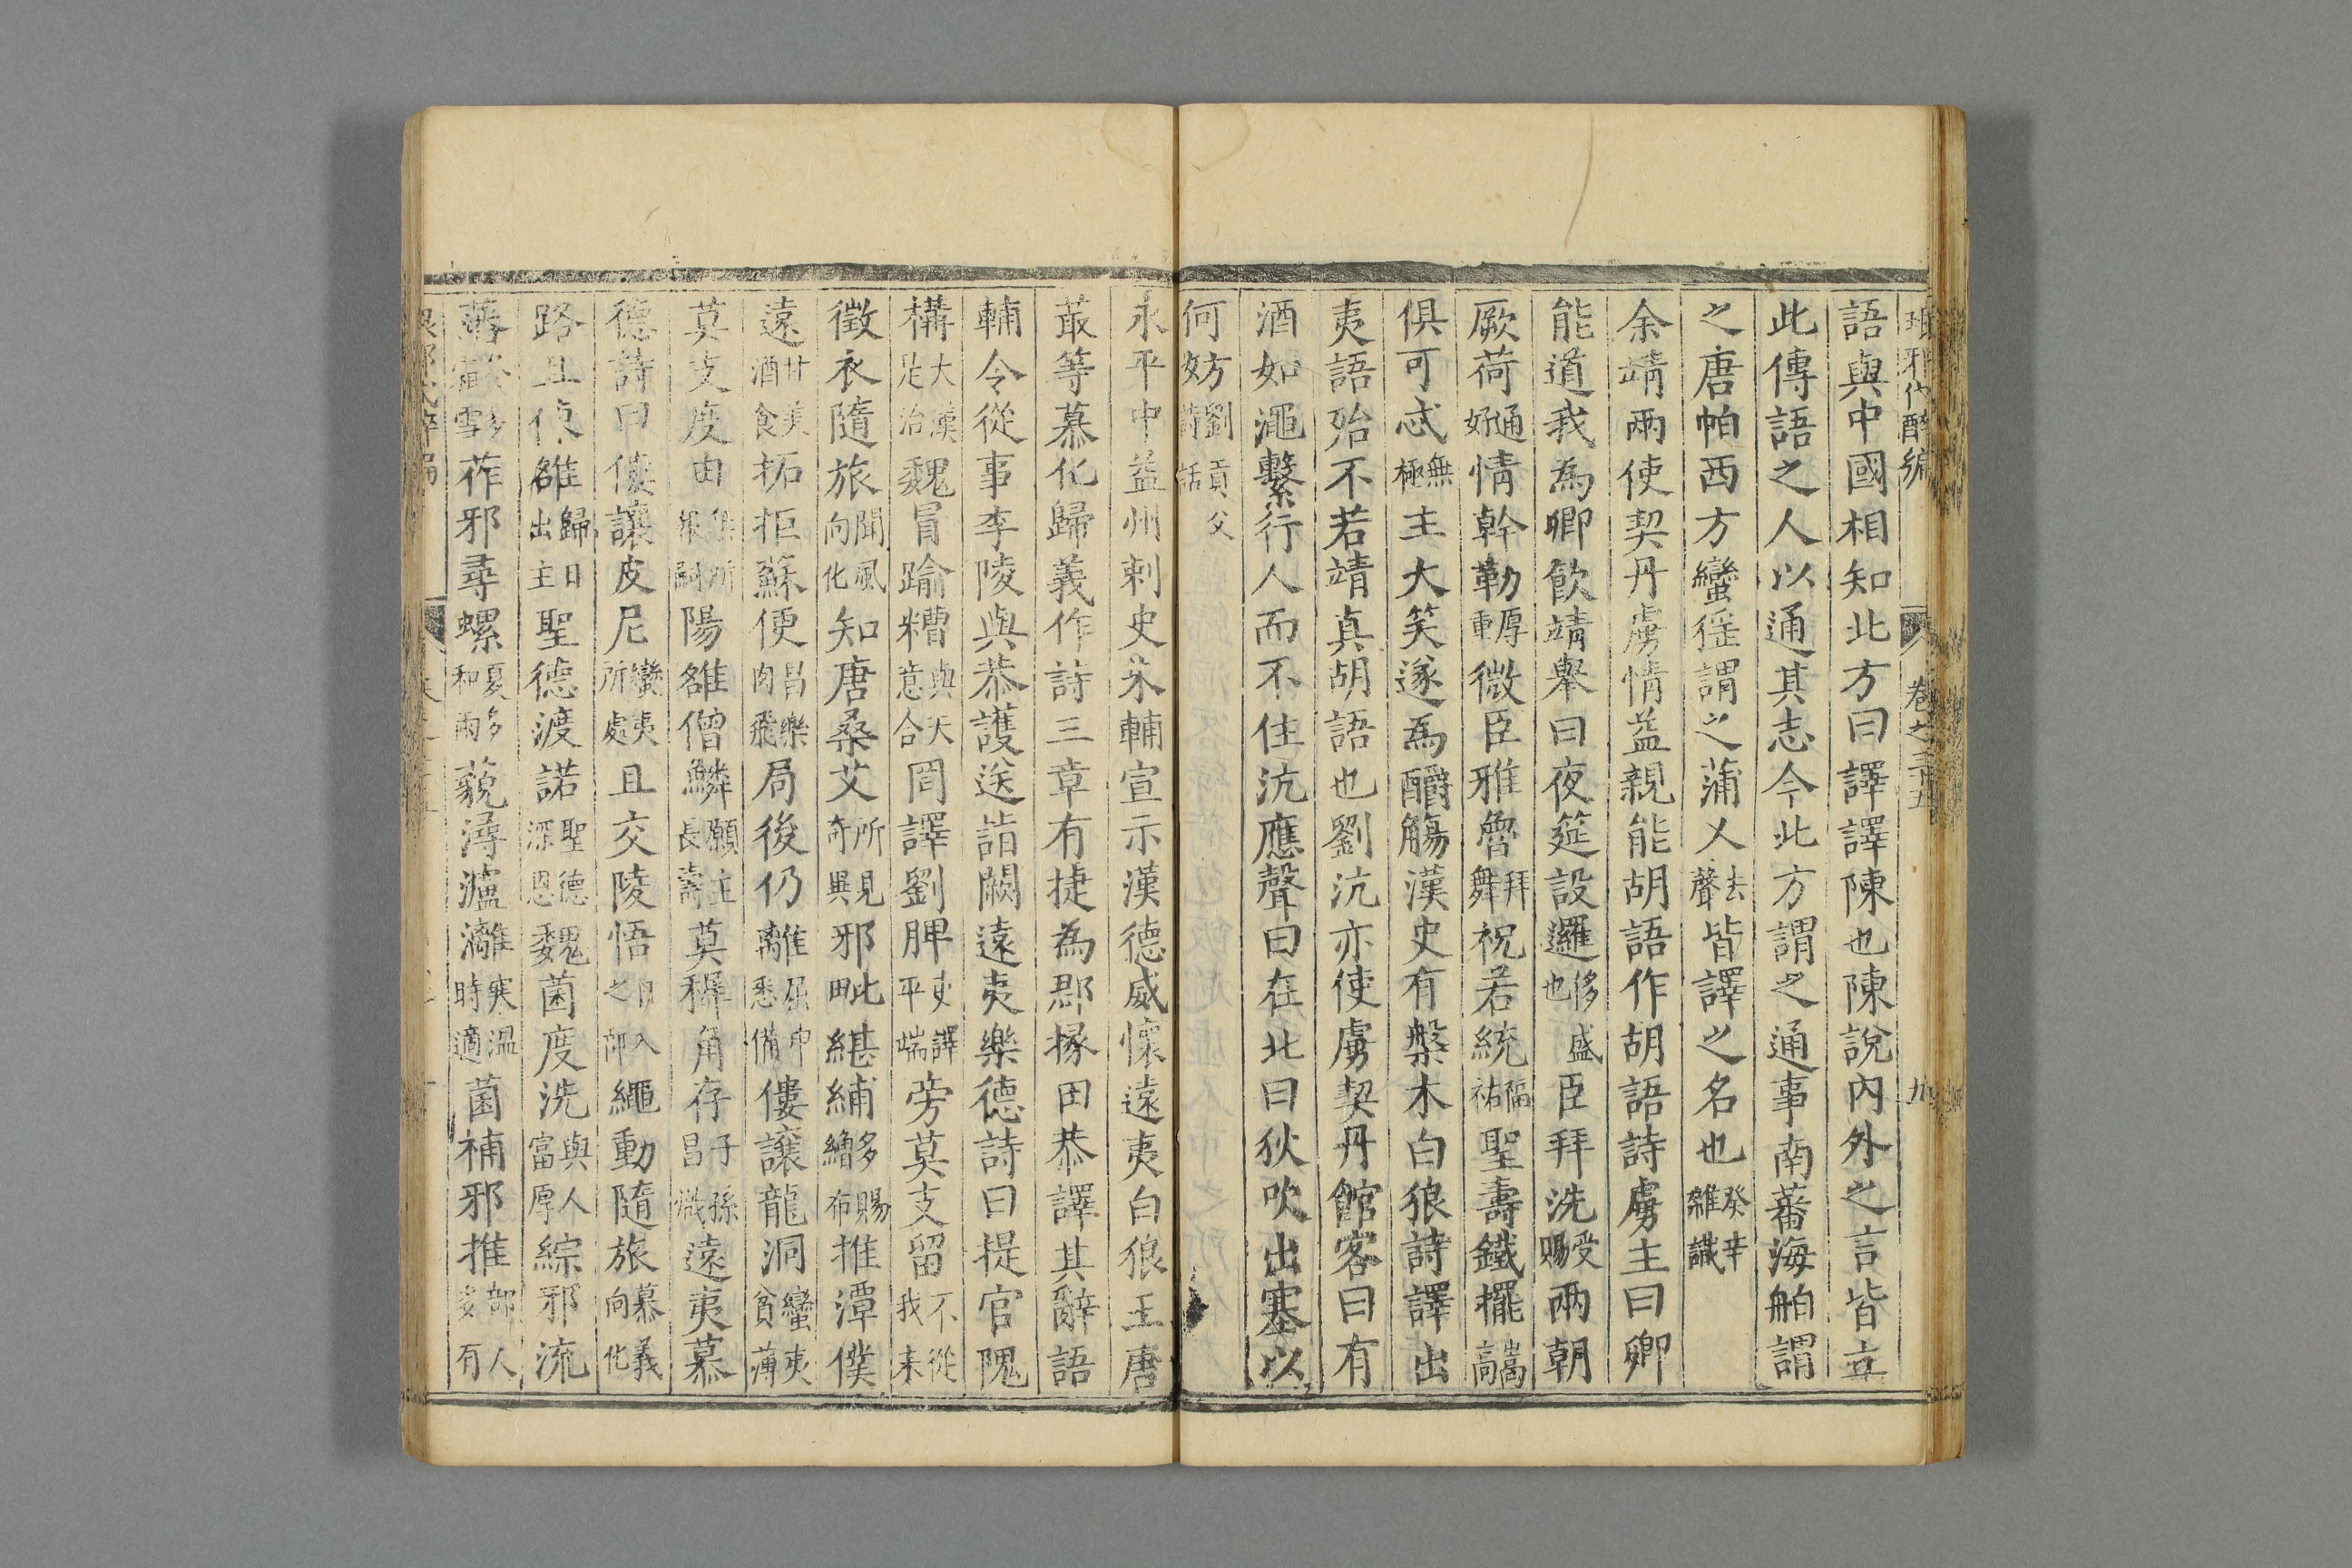 琅邪代醉編 卷之三十五 九
語與中國相知北方曰譯譯陳也陳說內外之言皆立
此傳語之人以通其志今北方謂之通事南蕃海舶謂
之唐帕西方蠻徭謂之蒲义去聲皆譯之名也癸辛雜識
余靖兩使契丹虜情益親能胡語作胡語詩虜主曰卿
能道我為卿飲靖舉曰夜筵設邏侈盛也臣拜洗受賜兩朝
厥荷通好情幹勒厚重微臣雅魯拜舞祝若統福祐聖壽鐵擺嵩高
俱可忒無極主大笑遂為釂觴漢史有槃木白狼詩譯出
夷語殆不若靖真胡語也劉沆亦使虜契丹館客曰有
酒如澠繫行人而不住沆應聲曰在北曰狄吹出塞以
何妨劉貢父詩話
永平中益州刺史朱輔宣示漢德威懷遠夷白狼王唐
菆等慕化歸義作詩三章有揵為郡掾田恭譯其辭語
輔令從事李陵與恭護送詣闕遠夷樂德詩曰提官隗
構大漢是治魏冒踰糟與天意合罔譯劉脾吏譯平端旁莫支留不從我來
徵衣隨旅聞風向化知唐桑艾所見奇異邪毗緁䋠多賜繒布推潭僕
遠甘美酒食拓拒蘇便昌樂肉飛局後仍離屈申悉備僂讓龍洞蠻夷貧薄
莫支度由無所報嗣陽雒僧鱗願主長壽莫穉角存子孫昌熾遠夷慕
德詩曰僂讓皮尼蠻夷所處且交陵悟日入之部繩動隨旅慕義向化
路且倲雒歸日出主聖德渡諾聖德深恩魏菌度洗與人富厚綜邪流
藩
莋邪尋螺夏多和雨藐潯瀘灕寒溫時適菌補邪推部人多有